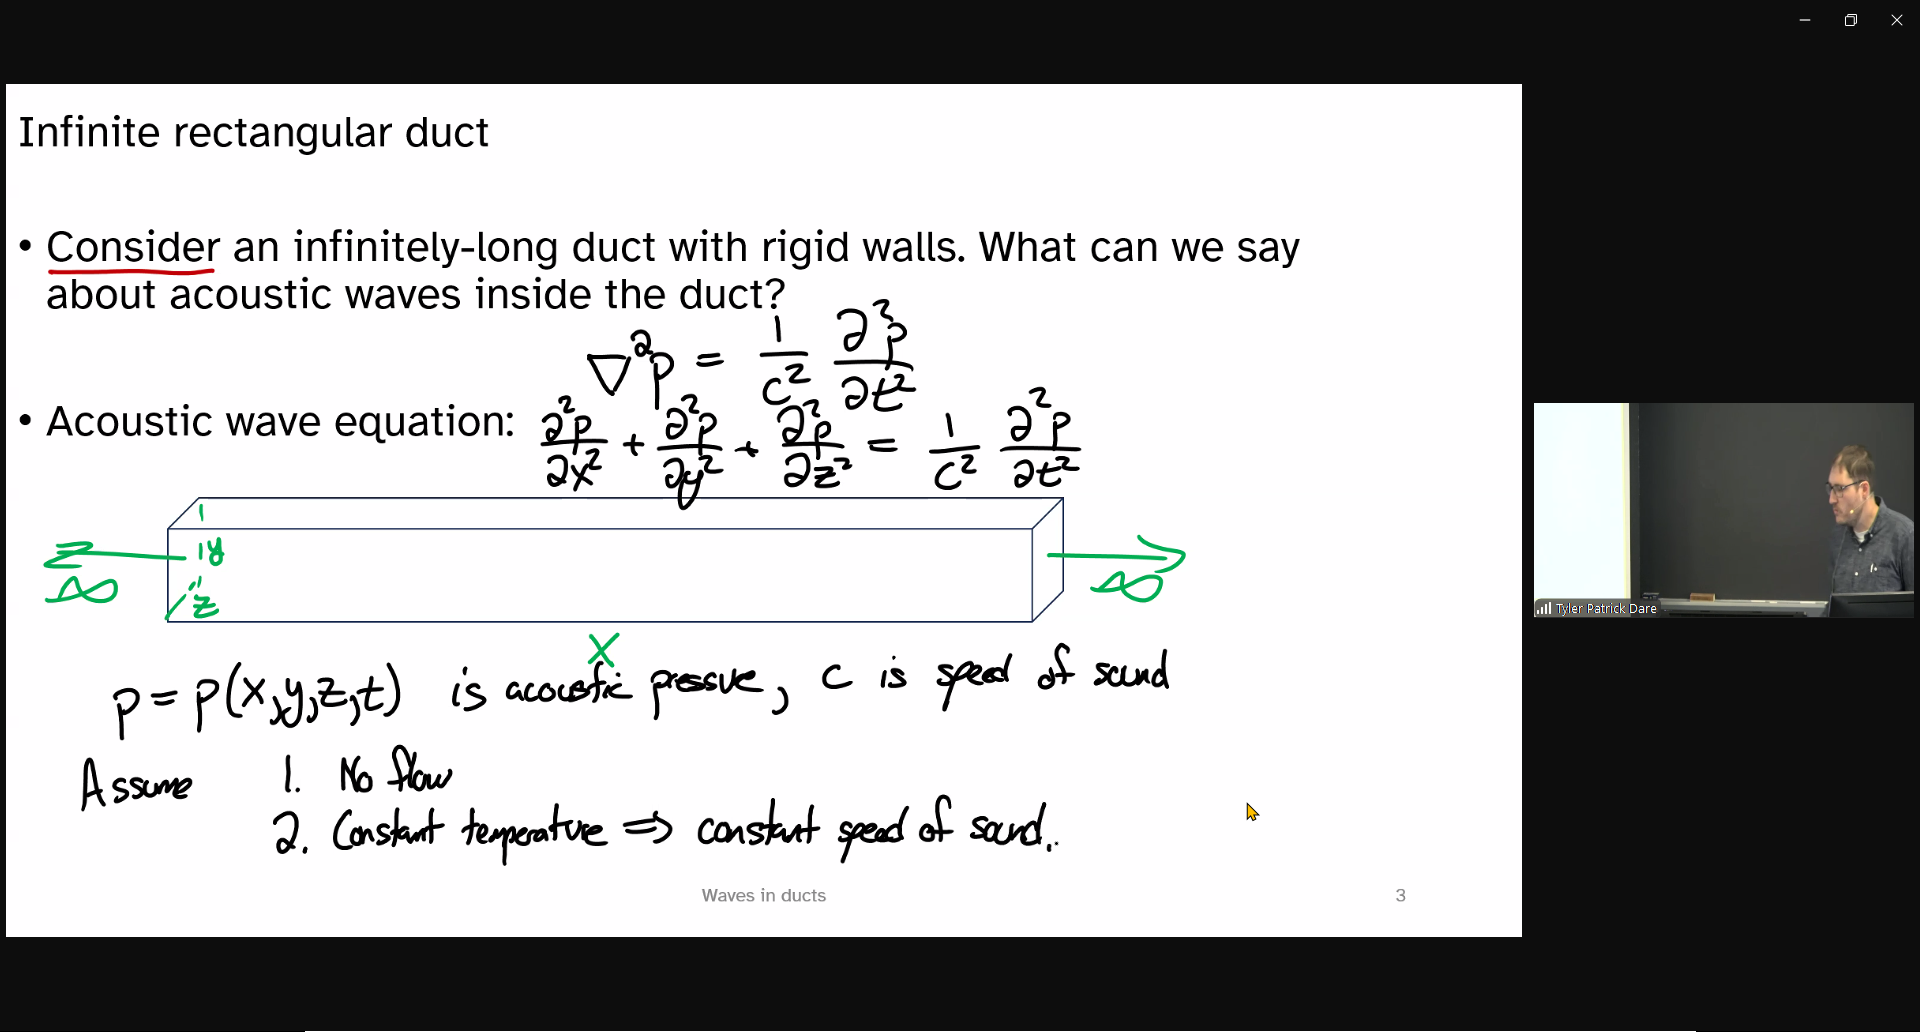 Infinite rectangular duct
• Consider an infinitely-long duct with rigid walls. What can we say
about acoustic waves inside the duct?
∇²p = 1/c² ∂²p/∂t²
• Acoustic wave equation: ∂²p/∂x² + ∂²p/∂y² + ∂²p/∂z² = 1/c² ∂²p/∂t²
y
∞ z ∞
x
p = p(x,y,z,t) is acoustic pressure, c is speed of sound
Assume 1. No flow
2. Constant temperature ⇒ constant speed of sound.
Waves in ducts 3
Tyler Patrick Dare